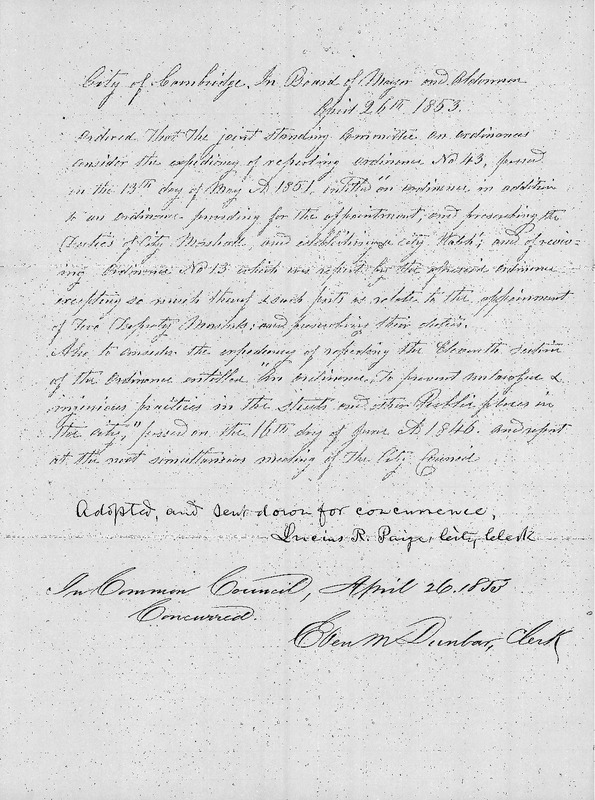 City of Cambridge. In Board of Mayor and Aldermen
April 26th 1853.
Ordered That the joint standing Committee on Ordinances
consider the expediency of repealing ordinance No 43, passed
in the 13th day of May A 1851, entitled "an ordinance in addition
to an ordinance providing for the appointment, and prescribing the
Duties of City Marshall, and establishing a city Watch"; and of reviv-
ing Ordinance No 13 which was repealed by the aforesaid ordinance
excepting so much thereof & such parts as relate to the appointment
of Two Deputy Marshals: and prescribing their duties.
Also to consider the expediency of repealing the Eleventh section
of the Ordinance entitled "An Ordinance, To prevent unlawful &
injurious practices in the streets and other Public places in
the city," passed on the 16th day of June A 1846 and report
at the next simultaneous meeting of the City Council
Adopted, and sent down for concurrence,
Lucius R. Paige, City Clerk
In Common Council, April 26. 1853
Concurred.
Eben M. Dunbar, Clerk